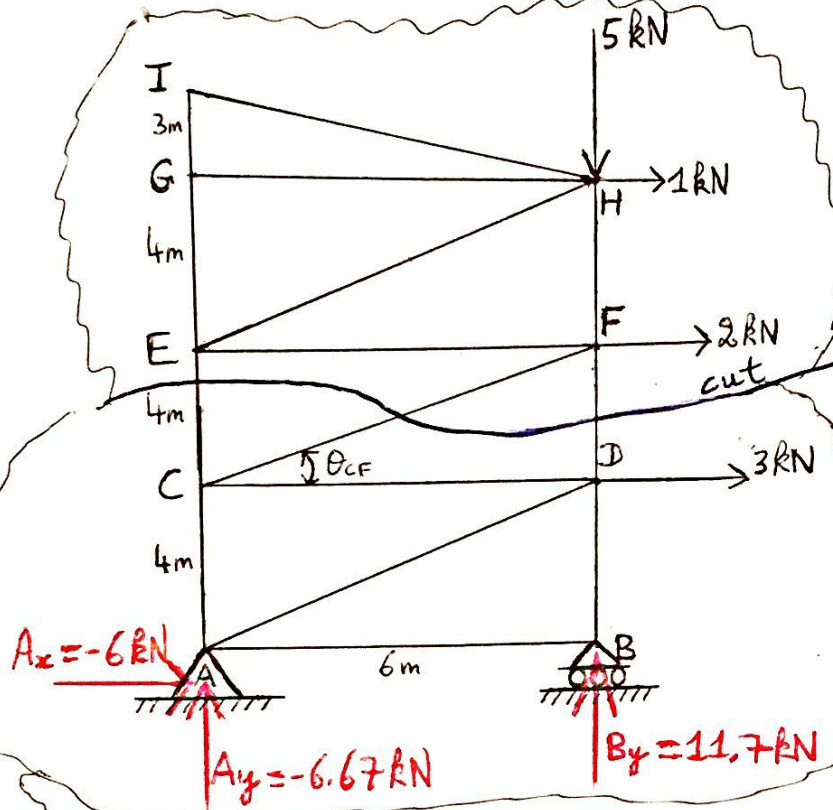 5 kN
I
3m
G
1 kN
H
4m
F
E
2 kN
cut
4m
θCF
D
3 kN
C
4m
Ax = -6 kN
A
6m
B
Ay = -6.67 kN
By = 11.7 kN